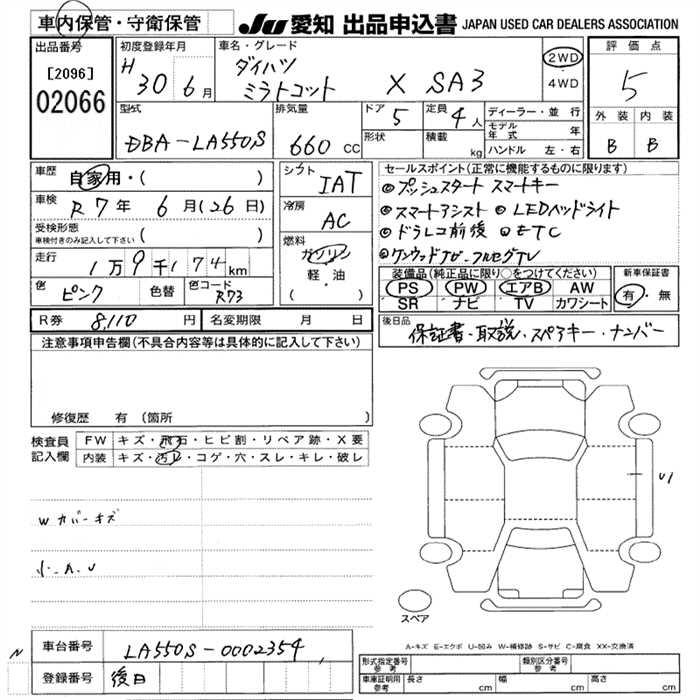 車内保管・守衛保管
JU 愛知 出品申込書 JAPAN USED CAR DEALERS ASSOCIATION
出品番号
[2096]
02066
初度登録年月
H 30 6 月
車名・グレード
ダイハツ
ミラトコット X SA3
2WD
・
4WD
評価点
5
外装 内装
B B
型式
DBA-LA550S
排気量
660 CC
ドア
5
定員
4 人
形状
積載
kg
ディーラー・並行
モデル年式 年
ハンドル 左・右
車歴
自家用・( )
車検
R 7 年 6 月(26日)
受検形態
車検付きのみ記入して下さい
走行
1万9千174km
色
ピンク
色替
色コード
R73
シフト
IAT
冷房
AC
燃料
ガソリン
軽・油
( )
セールスポイント(正常に機能するものに限ります)
◎プッシュスタート スマートキー
◎スマートアシスト ◎LEDヘッドライト
◎ドラレコ前後 ◎ETC
◎ケンウッドナビ・フルセグTV
装備品(純正品に限り○をつけてください)
PS・PW・エアB・AW
SR・ナビ・TV・カワシート
新車保証書
有・無
R券 8,110 円
名変期限 月 日
後日品
保証書・取説・スペアキー・ナンバー
注意事項申告欄(不具合内容等は具体的に記入して下さい)
修復歴 有(箇所 )
検査員
記入欄
FW キズ・飛石・ヒビ割・リペア跡・X要
内装 キズ・汚レ・コゲ・穴・スレ・キレ・破レ
W カバーキズ
小.A.U
U1
スペア
A-キズ E-エクボ U-凹み W-補修跡 S-サビ C-腐食 XX-交換済
N
車台番号 LA550S-0002354
登録番号 後日
形式指定番号
参考
類別区分番号
参考
車庫証明用
参考
長さ cm
幅 cm
高さ cm